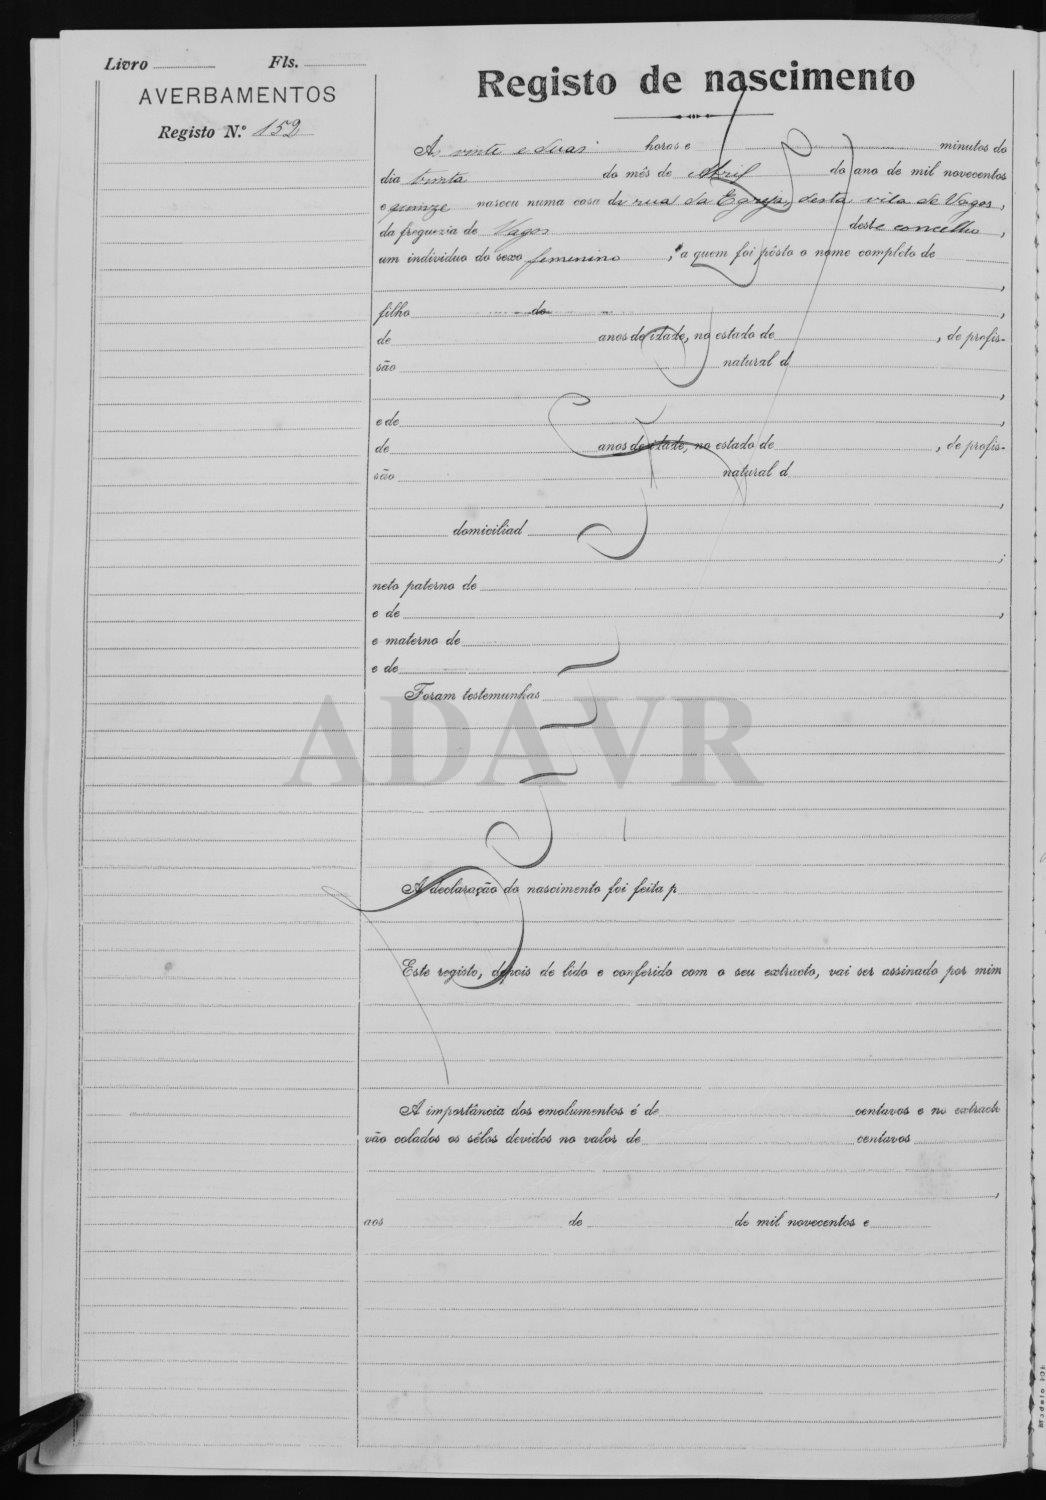 Livro Fls.
AVERBAMENTOS
Registo N.º 152
Registo de nascimento
Ás vinte e duas horas e minutos do
dia trinta do mês de Abril do ano de mil novecentos
e quinze nasceu numa casa da rua da Egreja, desta vila de Vagos,
da freguezia de Vagos deste concelho,
um individuo do sexo femenino, a quem foi pôsto o nome completo de
,
filho de ,
de anos de idade, no estado de , de profis-
são natural d
,
e de ,
de anos de idade, no estado de , de profis-
são natural d
,
domiciliad
;
neto paterno de
e de ,
e materno de
e de
Foram testemunhas
ADAVR
A declaração do nascimento foi feita p
Este registo, depois de lido e conferido com o seu extracto, vai ser assinado por mim
A importância dos emolumentos é de centavos e no extracto
vão colados os sêlos devidos no valor de centavos
,
aos de de mil novecentos e